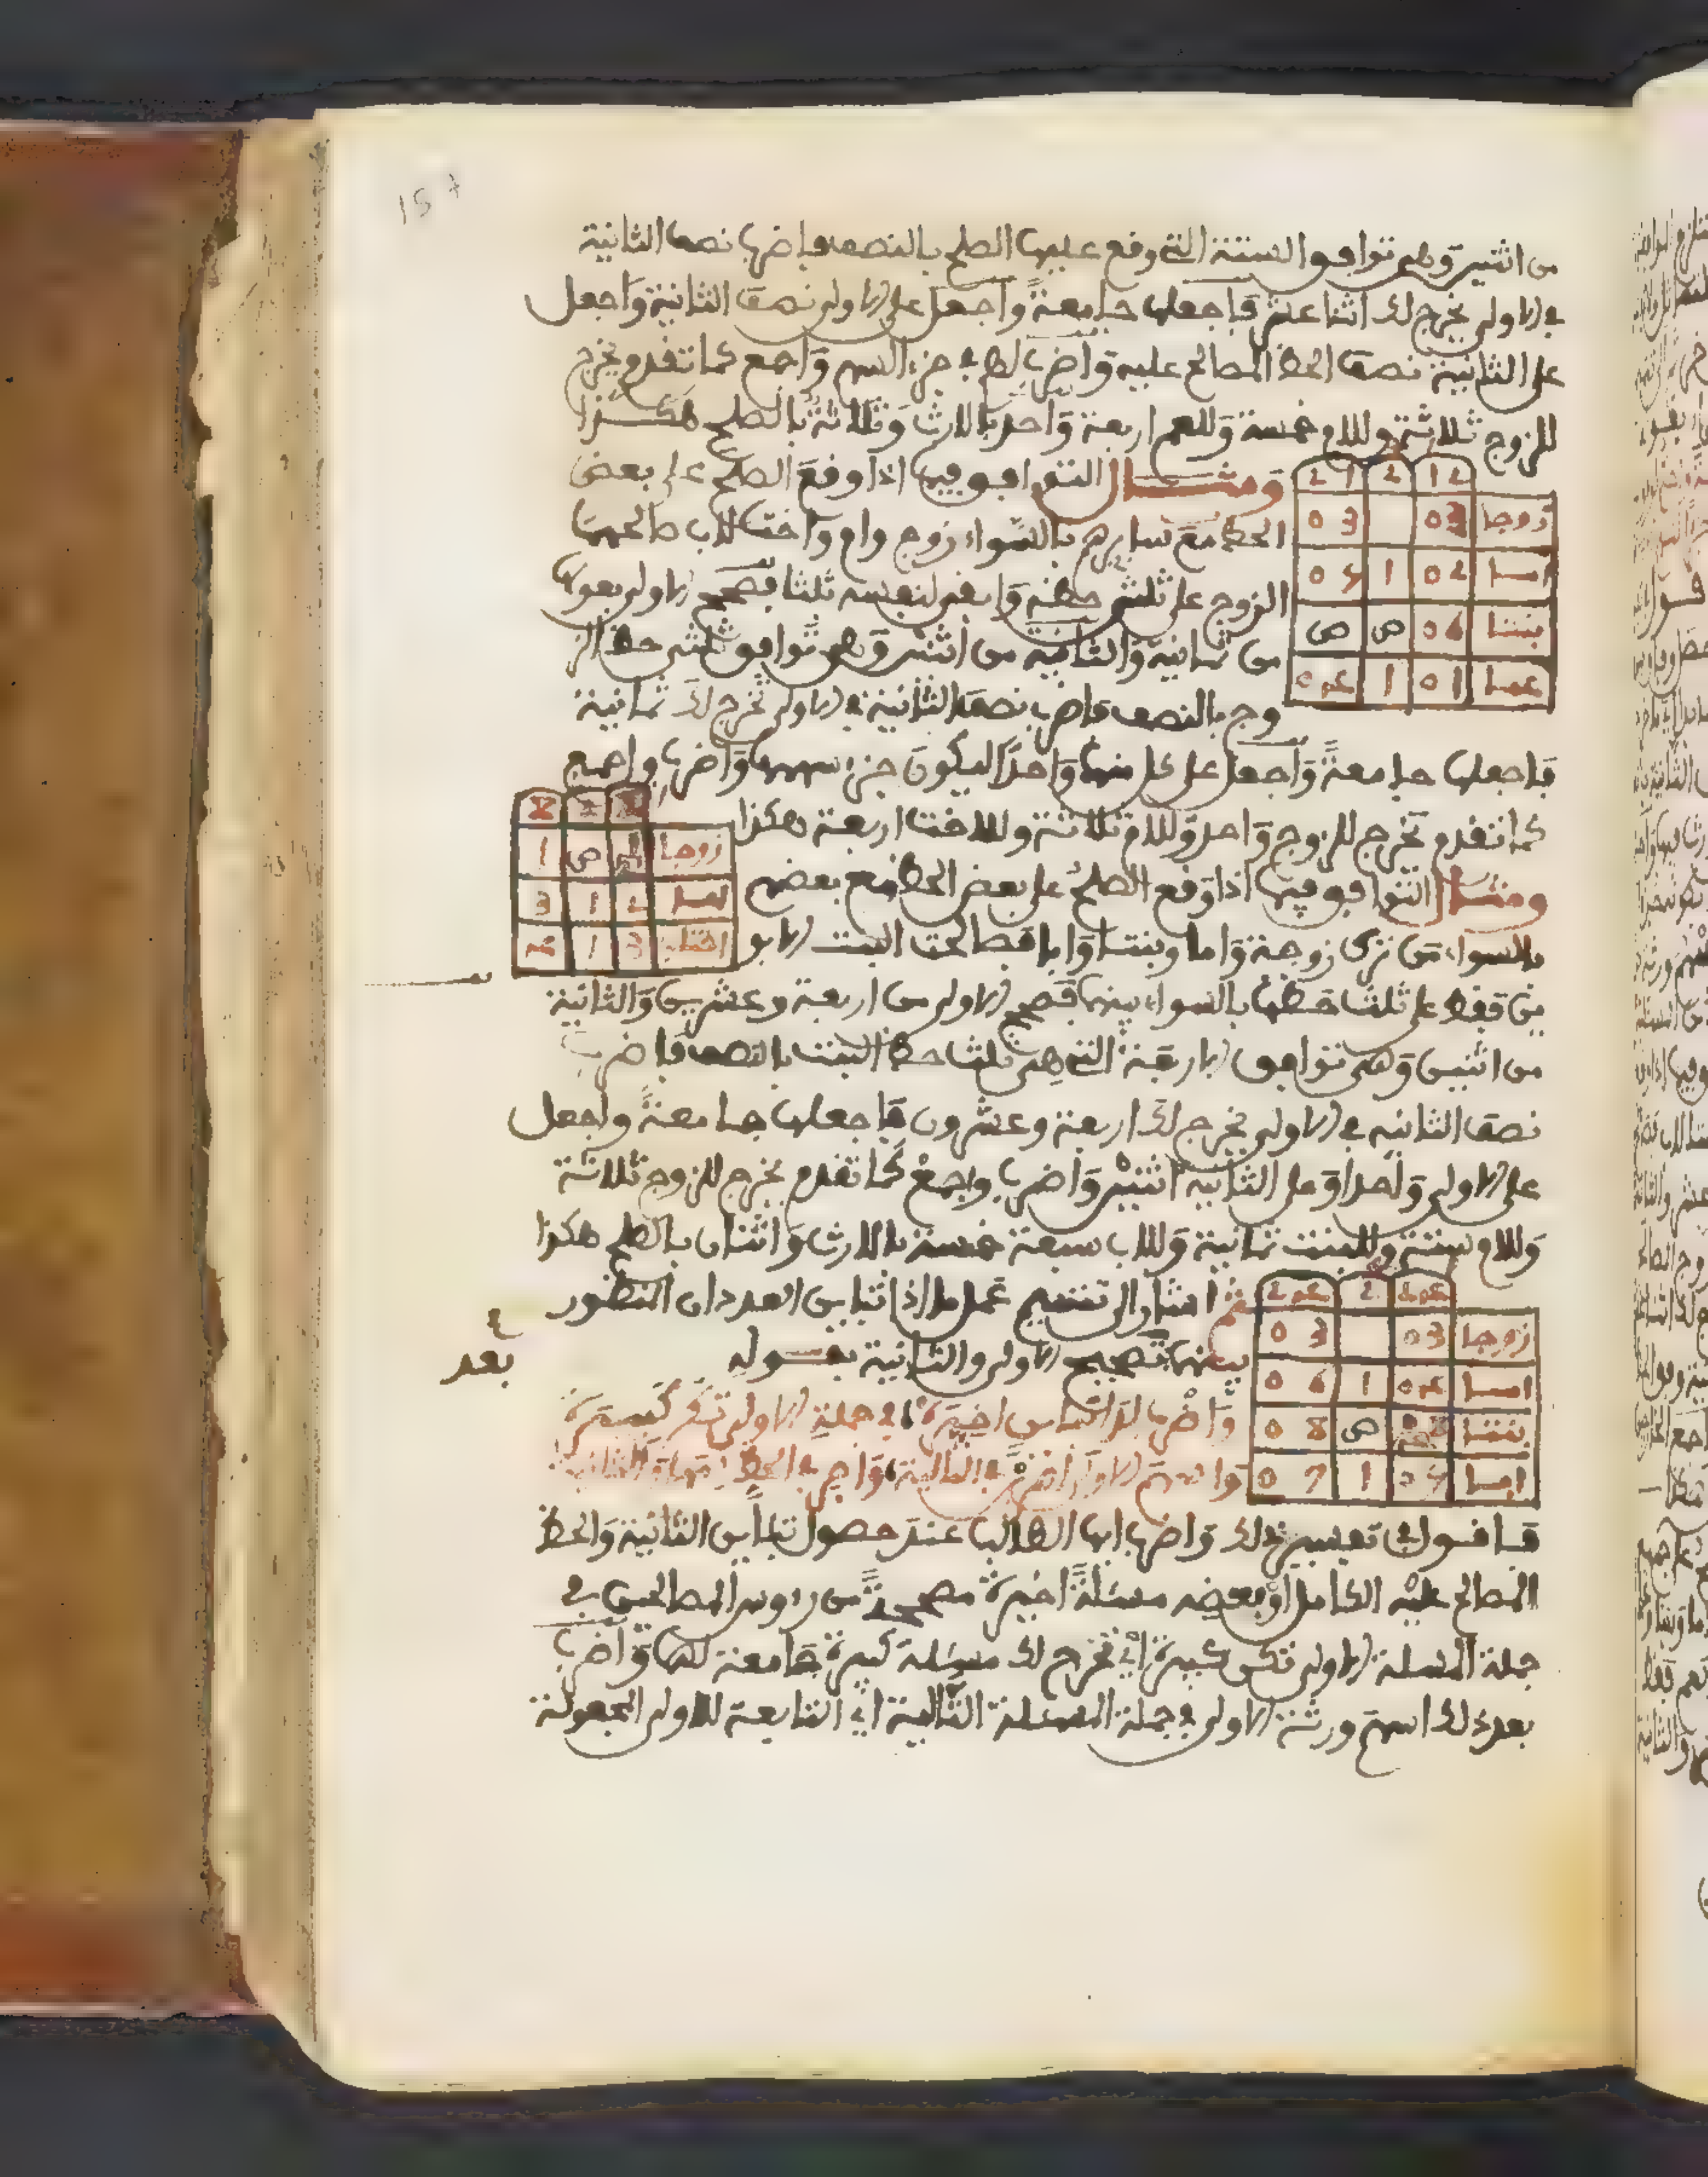 157
من اثنين وهي توافق الستة التي وقع عليها الصلح بالنصف فاضرب نصف الثانية
في الاولى يخرج لك اثنا عشر فاجعلها جامعة واجعل على الاولى نصف الثانية واجعل
على الثانية نصف الحظ المصالح عليه واضرب لهم في جزء السهم واجمع كما تقدم يخرج
للزوج ثلاثة وللام خمسة وللعم اربعة واحد بالارث وثلاثة بالصلح هكذا
ومثال التوافق فيها اذا وقع الصلح على بعض
الحظ مع سايرهم بالسواء زوج وام واخت لاب صالحها
الزوج على ثلثي حظه وابقى لنفسه ثلثا فتصح الاولى بعولها
من ثمانية والثانية من اثنين وهي توافق ثلثي حظ الز
وج بالنصف فاضرب نصف الثانية في الاولى تخرج لك ثمانية
فاجعلها جامعة واجعل على كل منهما واحدا ليكون جزء سهمها واضرب واجمع
كما تقدم تخرج للزوج واحد وللام ثلاثة وللاخت اربعة هكذا
ومثال التوافق فيها اذا وقع الصلح على بعض الحظ مع بعضهم
بالسواء من ترك زوجة واما وبنتا وابا فصالحت البنت الابو
ين فقط على ثلث حظها بالسواء بينهما فتصح الاولى من اربعة وعشرين والثانية
من اثنين وهي توافق الاربعة التي هي ثلث حظ البنت بالنصف فاضرب
نصف الثانية في الاولى يخرج لك اربعة وعشرون فاجعلها جامعة واجعل
على الاولى واحدا وعلى الثانية اثنين واضرب واجمع كما تقدم يخرج للزوج ثلاثة
وللام ستة وللبنت ثمانية وللاب سبعة خمسة بالارث واثنان بالصلح هكذا
ثم اشار الى تتميم عمل ما اذا تباين العددان المنظور
بينهما تصحيح الاولى والثانية بقوله
بعد
واضرب لدا التباين اخيرة في جملة الاولى تكن كبيرة
واسهم الاولى اضرب في التالية واضرب في الحظ سهام الثانية
فاقول في تفسير ذلك واضرب ايها الطالب عند حصول تباين الثانية والحظ
المصالح عليه الكامل او بعضه مسئلة اخيرة مصححة من رءوس المصالحين في
جملة المسئلة الاولى تكن كبيرة اي تخرج لك مسئلة كبيرة جامعة لهما واضرب
بعد ذلك اسهم ورثة الاولى في جملة المسئلة التالية اي التابعة للاولى المجعولة